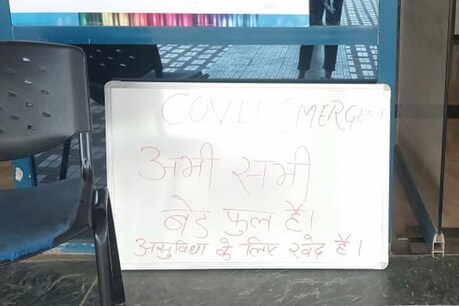 COVID EMERGENCY
अभी सभी
बेड फुल है।
असुविधा के लिए खेद है।